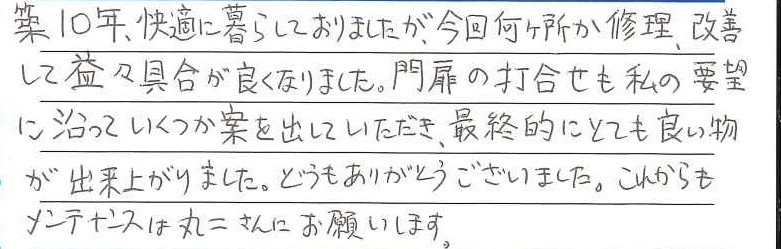 築10年、快適に暮らしておりましたが、今回何ヶ所か修理、改善
して益々具合が良くなりました。門扉の打合せも私の要望
に沿っていくつか案を出していただき、最終的にとても良い物
が出来上がりました。どうもありがとうございました。これからも
メンテナンスは丸二さんにお願いします。